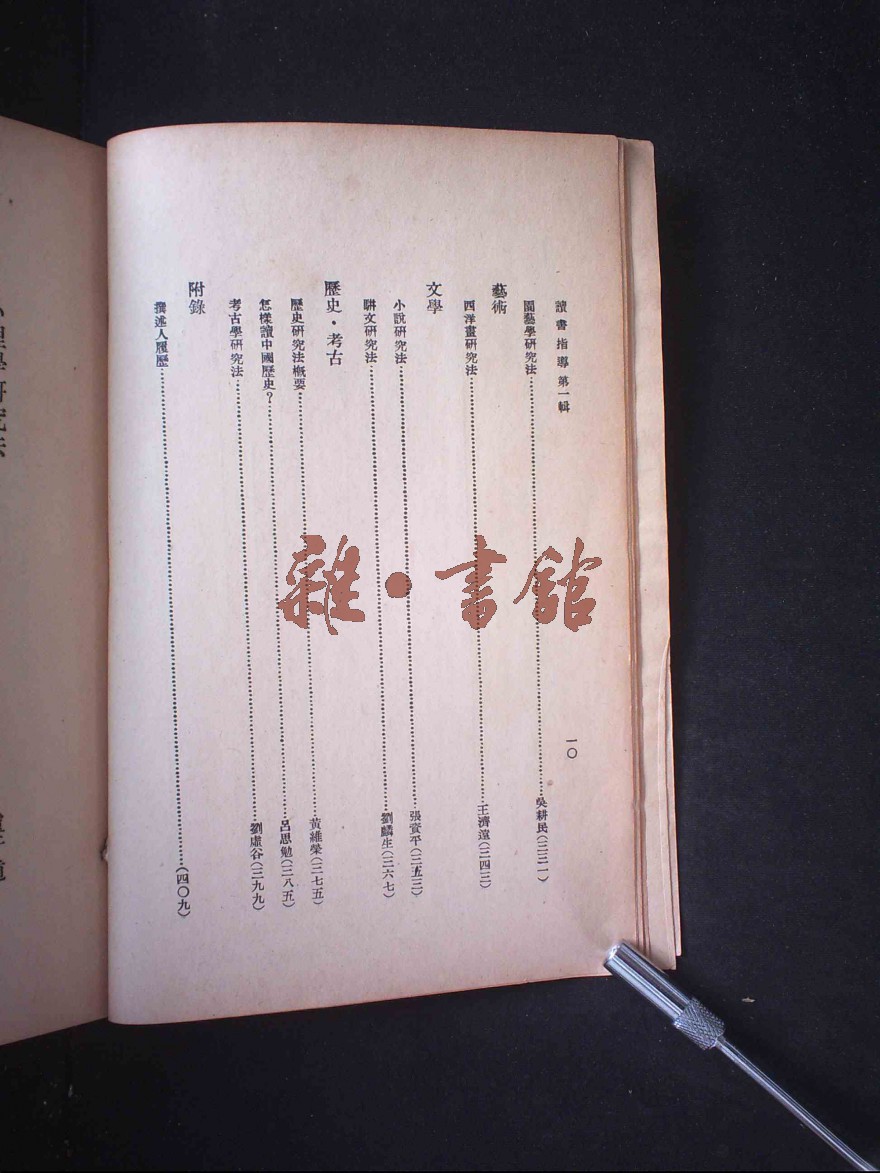 讀書指導 第一輯
一〇
園藝學研究法……吳耕民(三三一)
藝術
西洋畫研究法……王濟遠(三四三)
文學
小說研究法……張資平(三五三)
駢文研究法……劉麟生(三六七)
歷史・考古
歷史研究法概要……黃維榮(三七五)
怎樣讀中國歷史？……呂思勉(三八五)
考古學研究法……劉虛谷(三九九)
附錄
撰述人履歷……(四〇九)
理學研究法
雜・書館